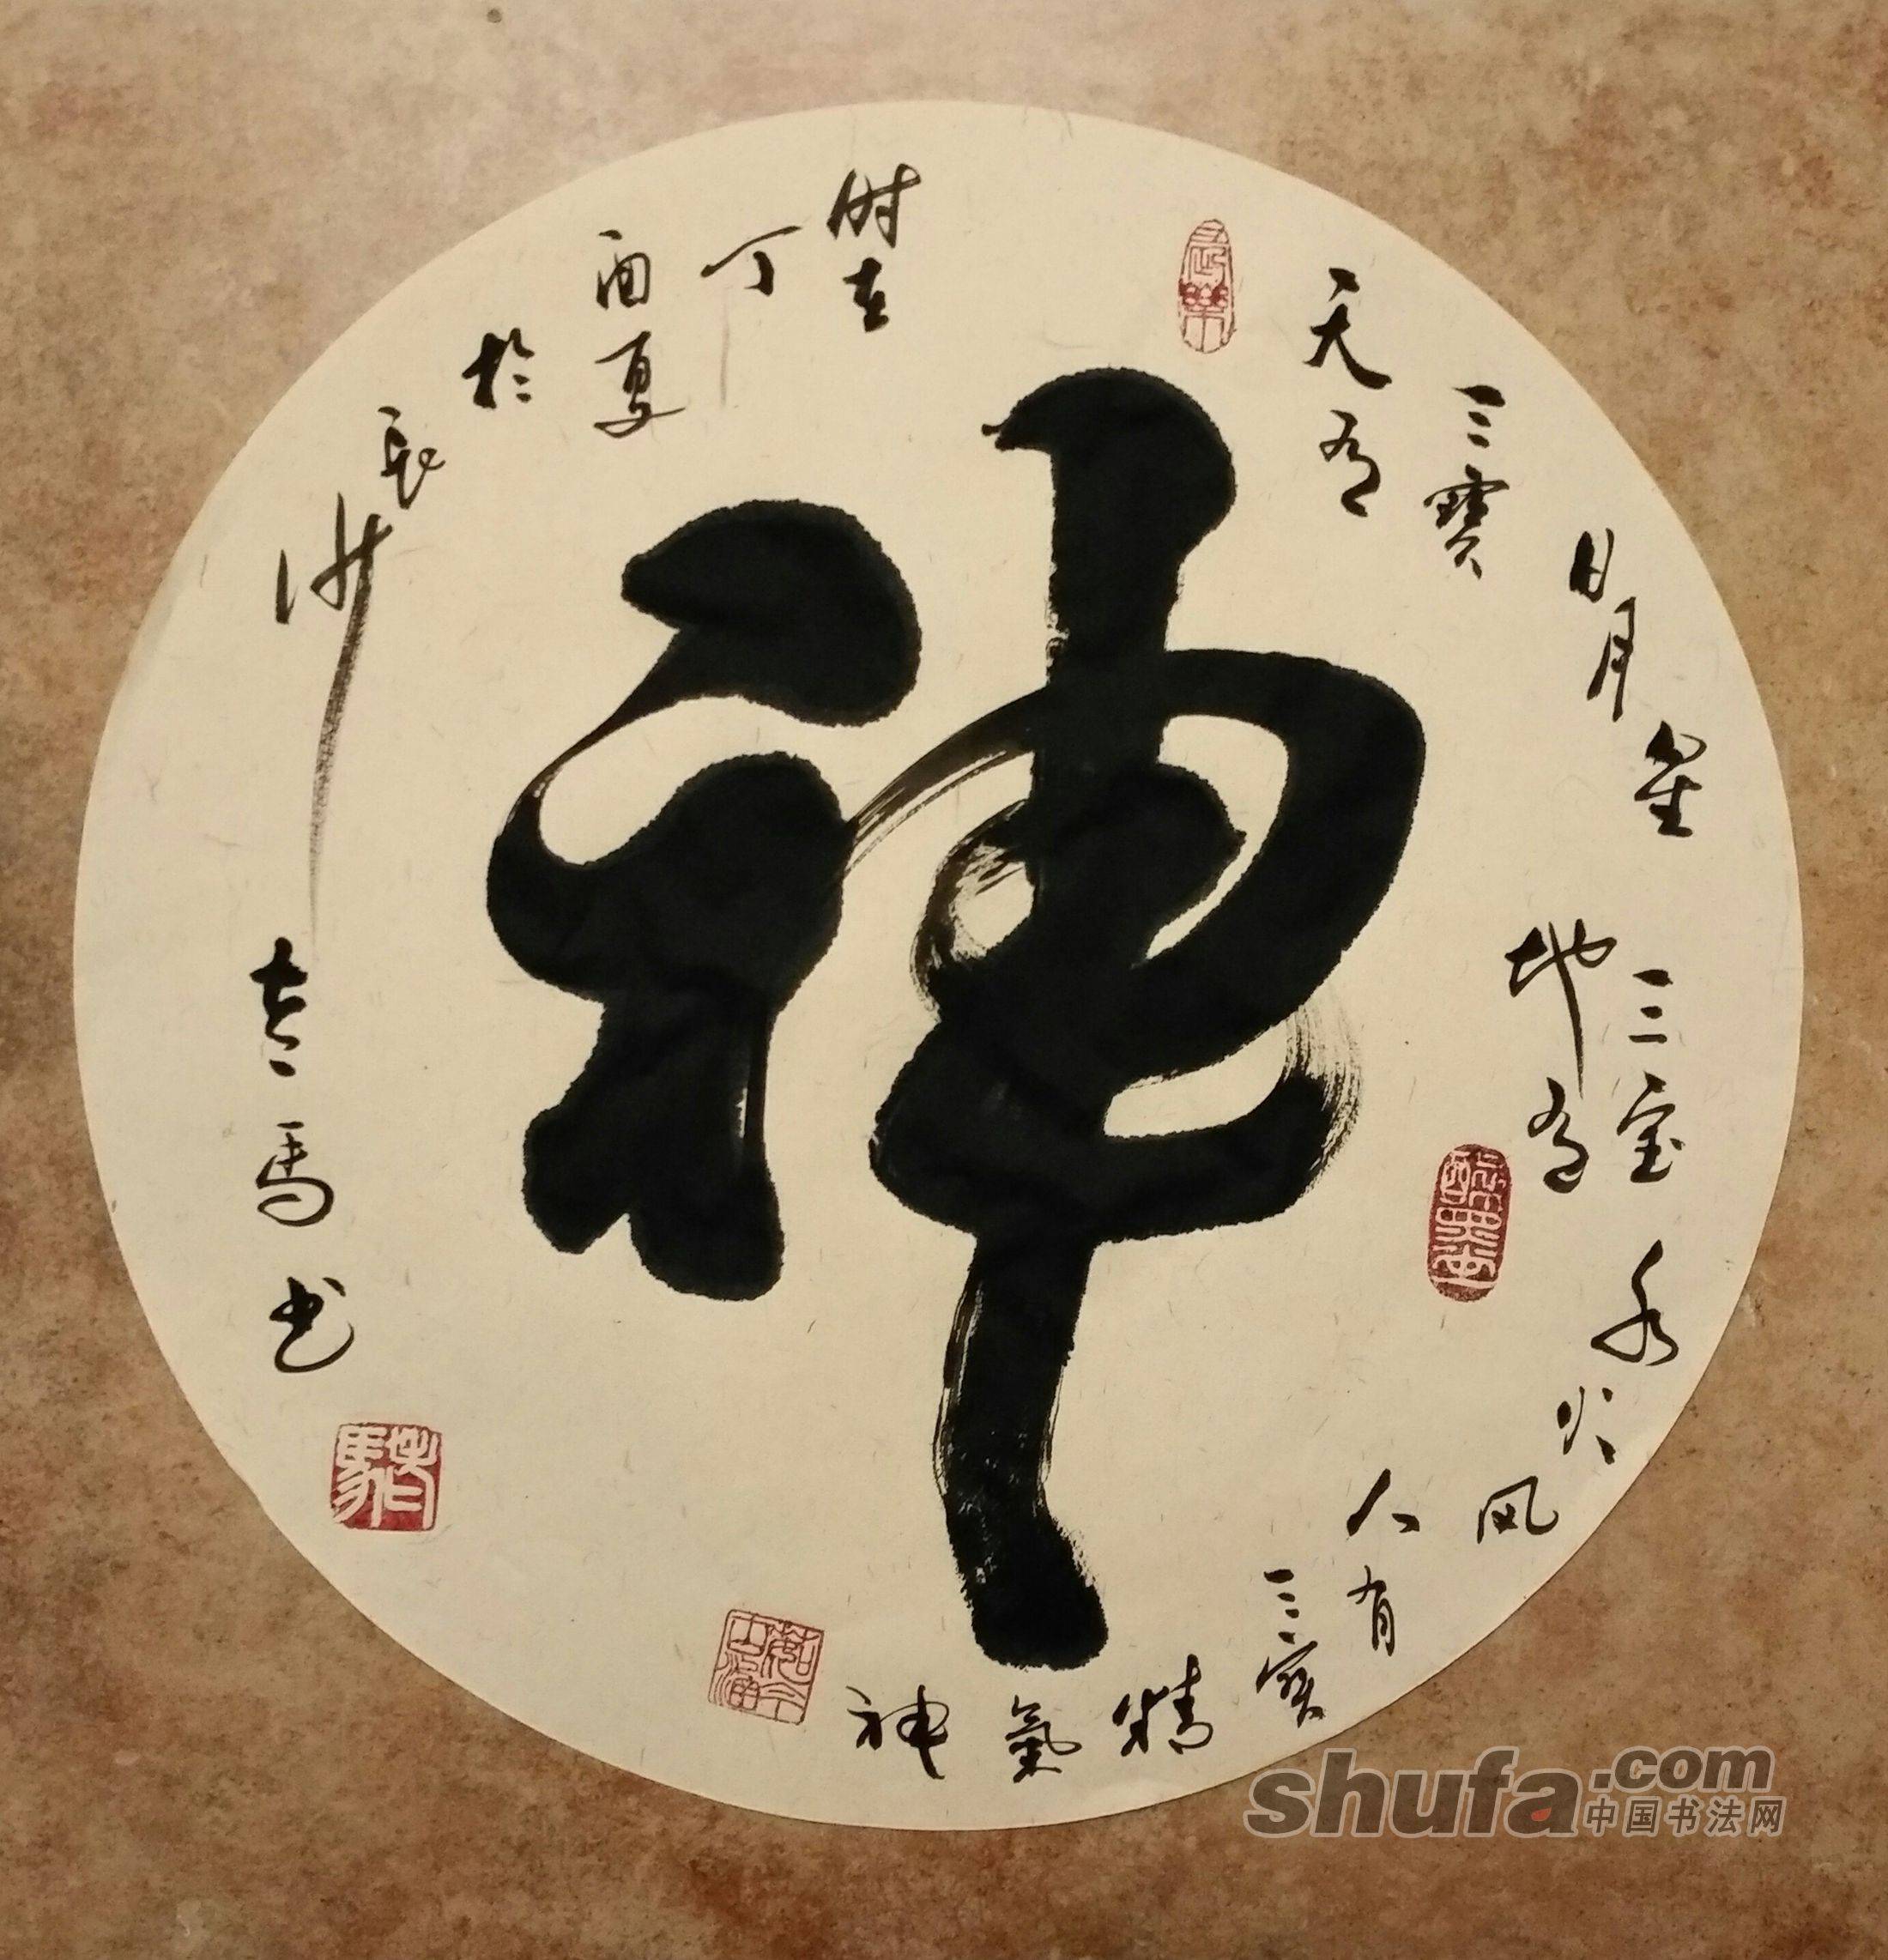 神
天有
三寶
日月
星
地有
三宝
水
火
风
人有
三寳
精
氣
神
时在
丁
酉夏
於
長
沙
志馬书
shufa.com
中国书法网